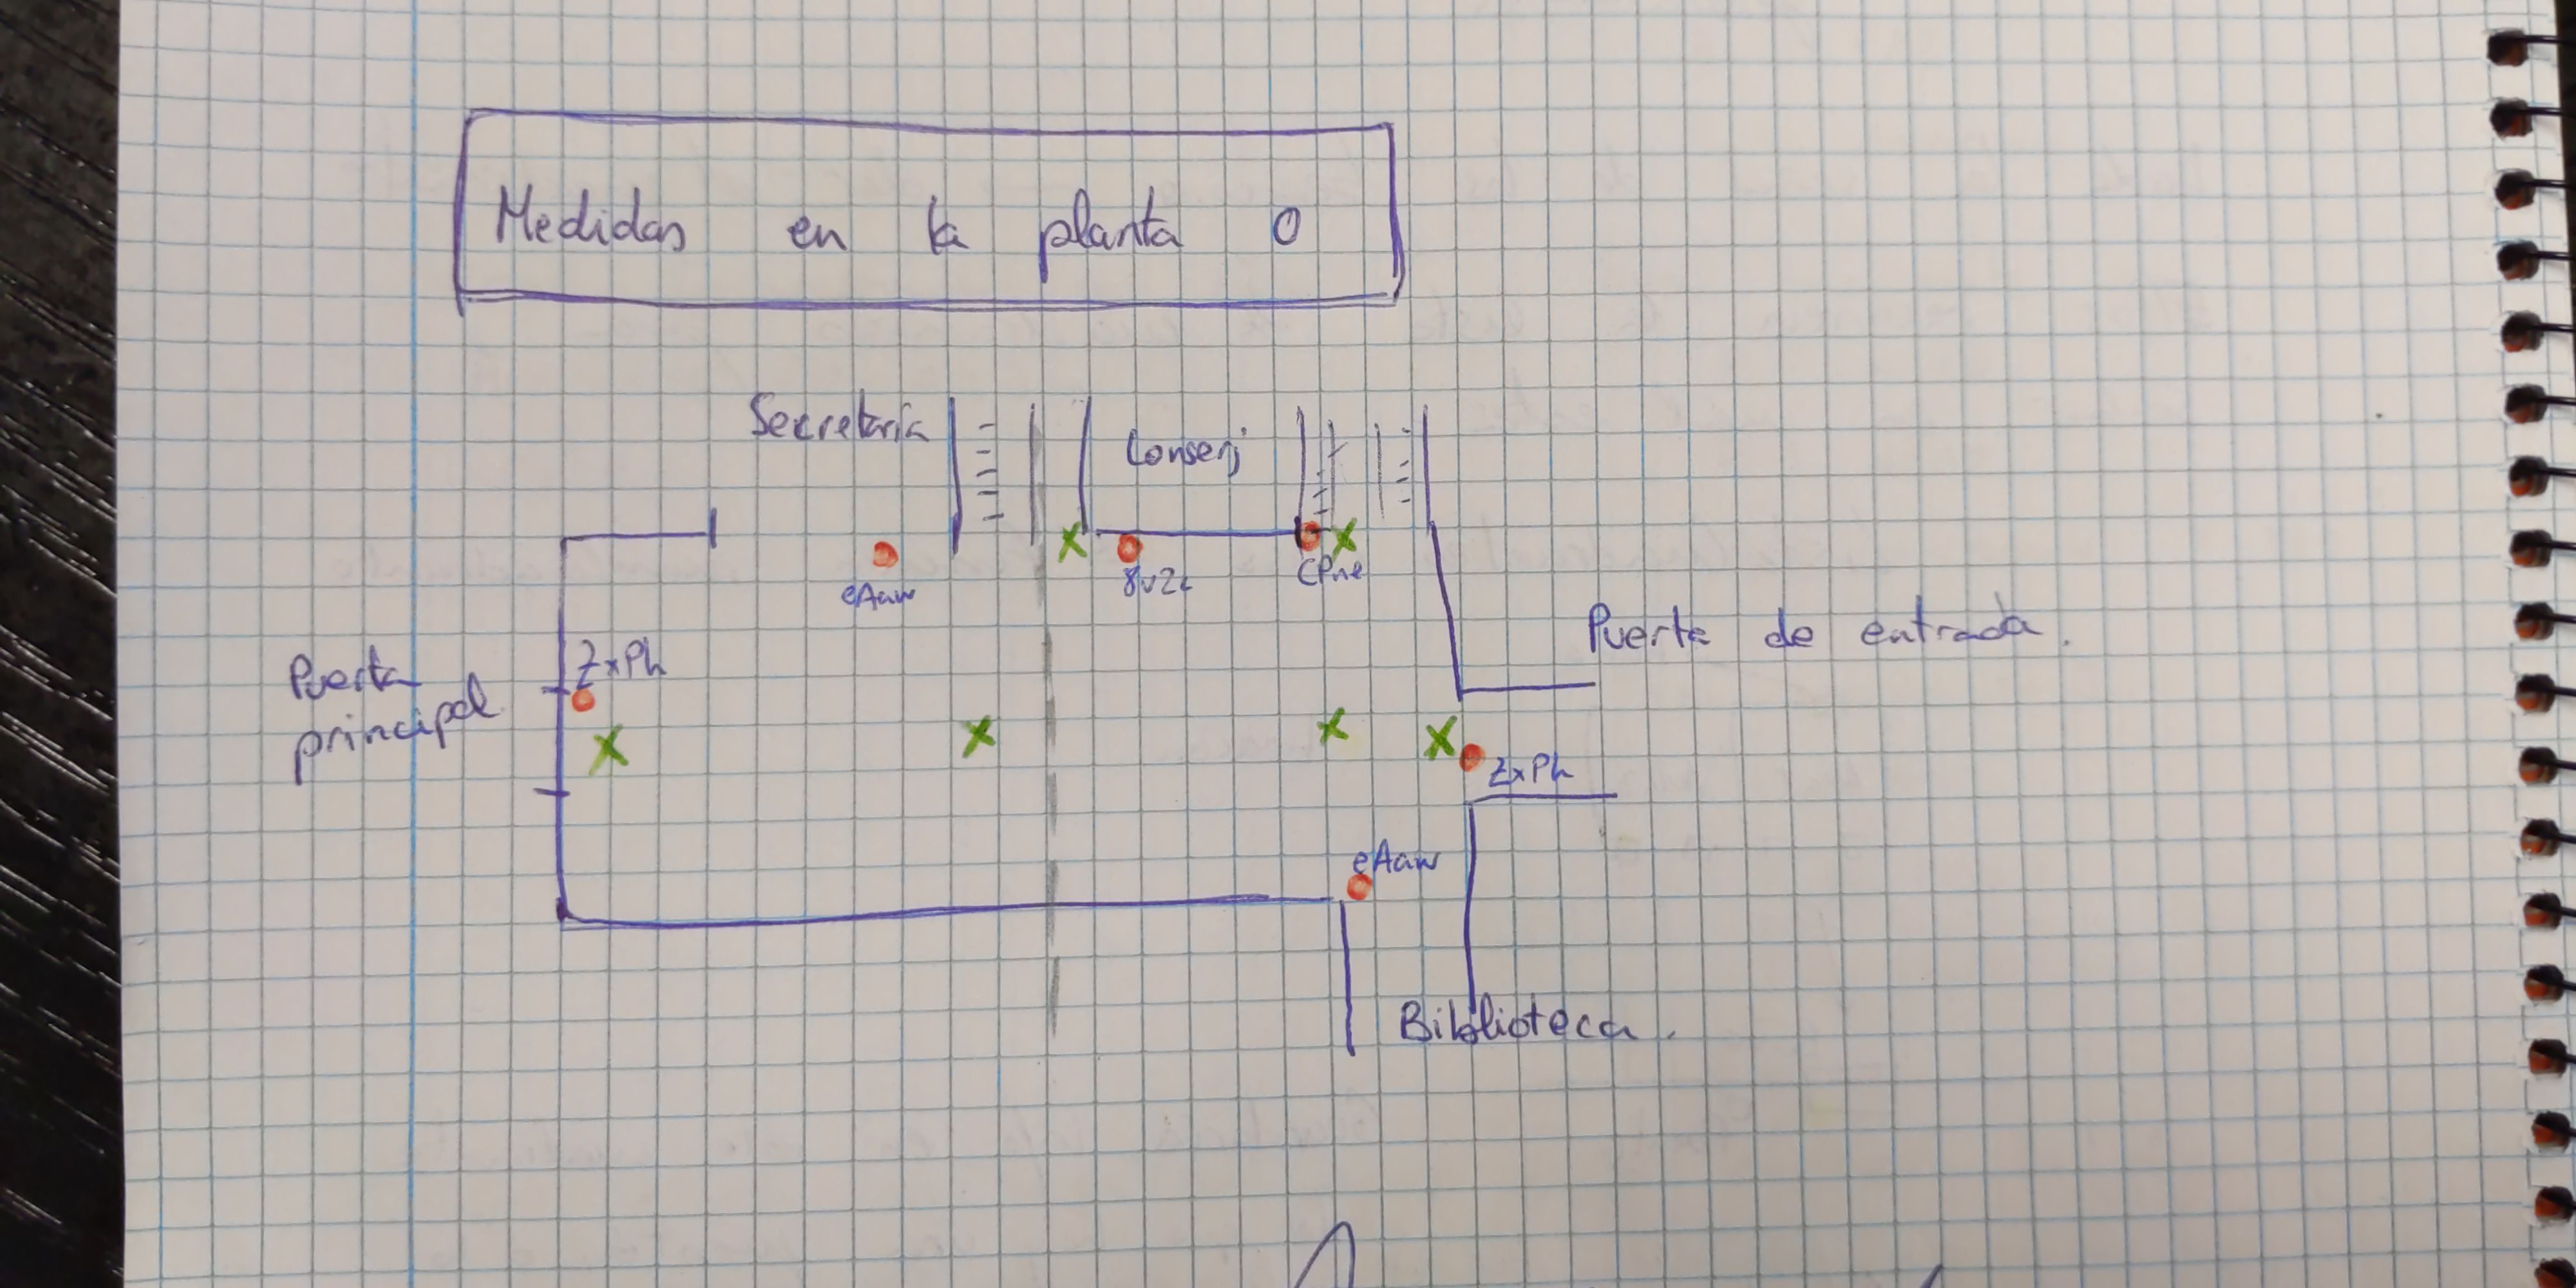 Medidas en la planta 0
Secretaría
Conserj
eAaw
8v2c
CPne
Puerta de entrada.
ZxPh
Puerta
principal
ZxPh
eAaw
Biblioteca.